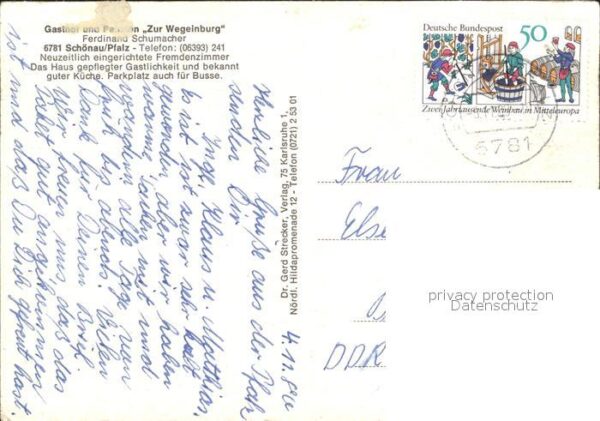 Gasthof und Pension „Zur Wegelnburg"
Ferdinand Schumacher
6781 Schönau/Pfalz - Telefon: (06393) 241
Neuzeitlich eingerichtete Fremdenzimmer
Das Haus gepflegter Gastlichkeit und bekannt
guter Küche. Parkplatz auch für Busse.
4.11.80
Herzliche Grüße aus der Pfalz
senden Dir
Ingo, Klaus u. Matthias.
Es ist zwar sehr kalt
geworden aber wir haben
warme Sachen mit und
wandern alle Tage von
früh bis abends. Vielen
Dank für Deinen Brief.
Wir freuen uns daß das
Paket gut angekommen
ist und daß Du Dich gefreut hast.
Dr. Gerd Strecker, Verlag, 75 Karlsruhe 1,
Nördl. Hildapromenade 12 - Telefon (0721) 2 53 01
Deutsche Bundespost 50
Zwei Jahrtausende Weinbau in Mitteleuropa
6781
Frau
Else
DDR
privacy protection
Datenschutz